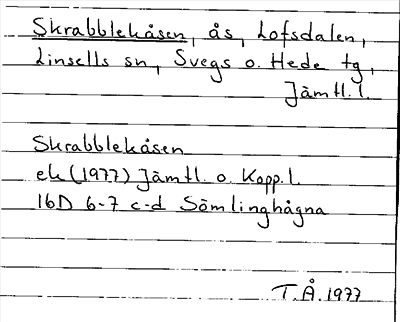 Skrabblekåsen, ås, Lofsdalen,
Linsells sn, Svegs o. Hede tg,
Jämtl.l.
Skrabblekåsen
ek (1977) Jämtl. o. Kopp.l.
16D 6-7 c-d Sömlinghågna
T.Å. 1977